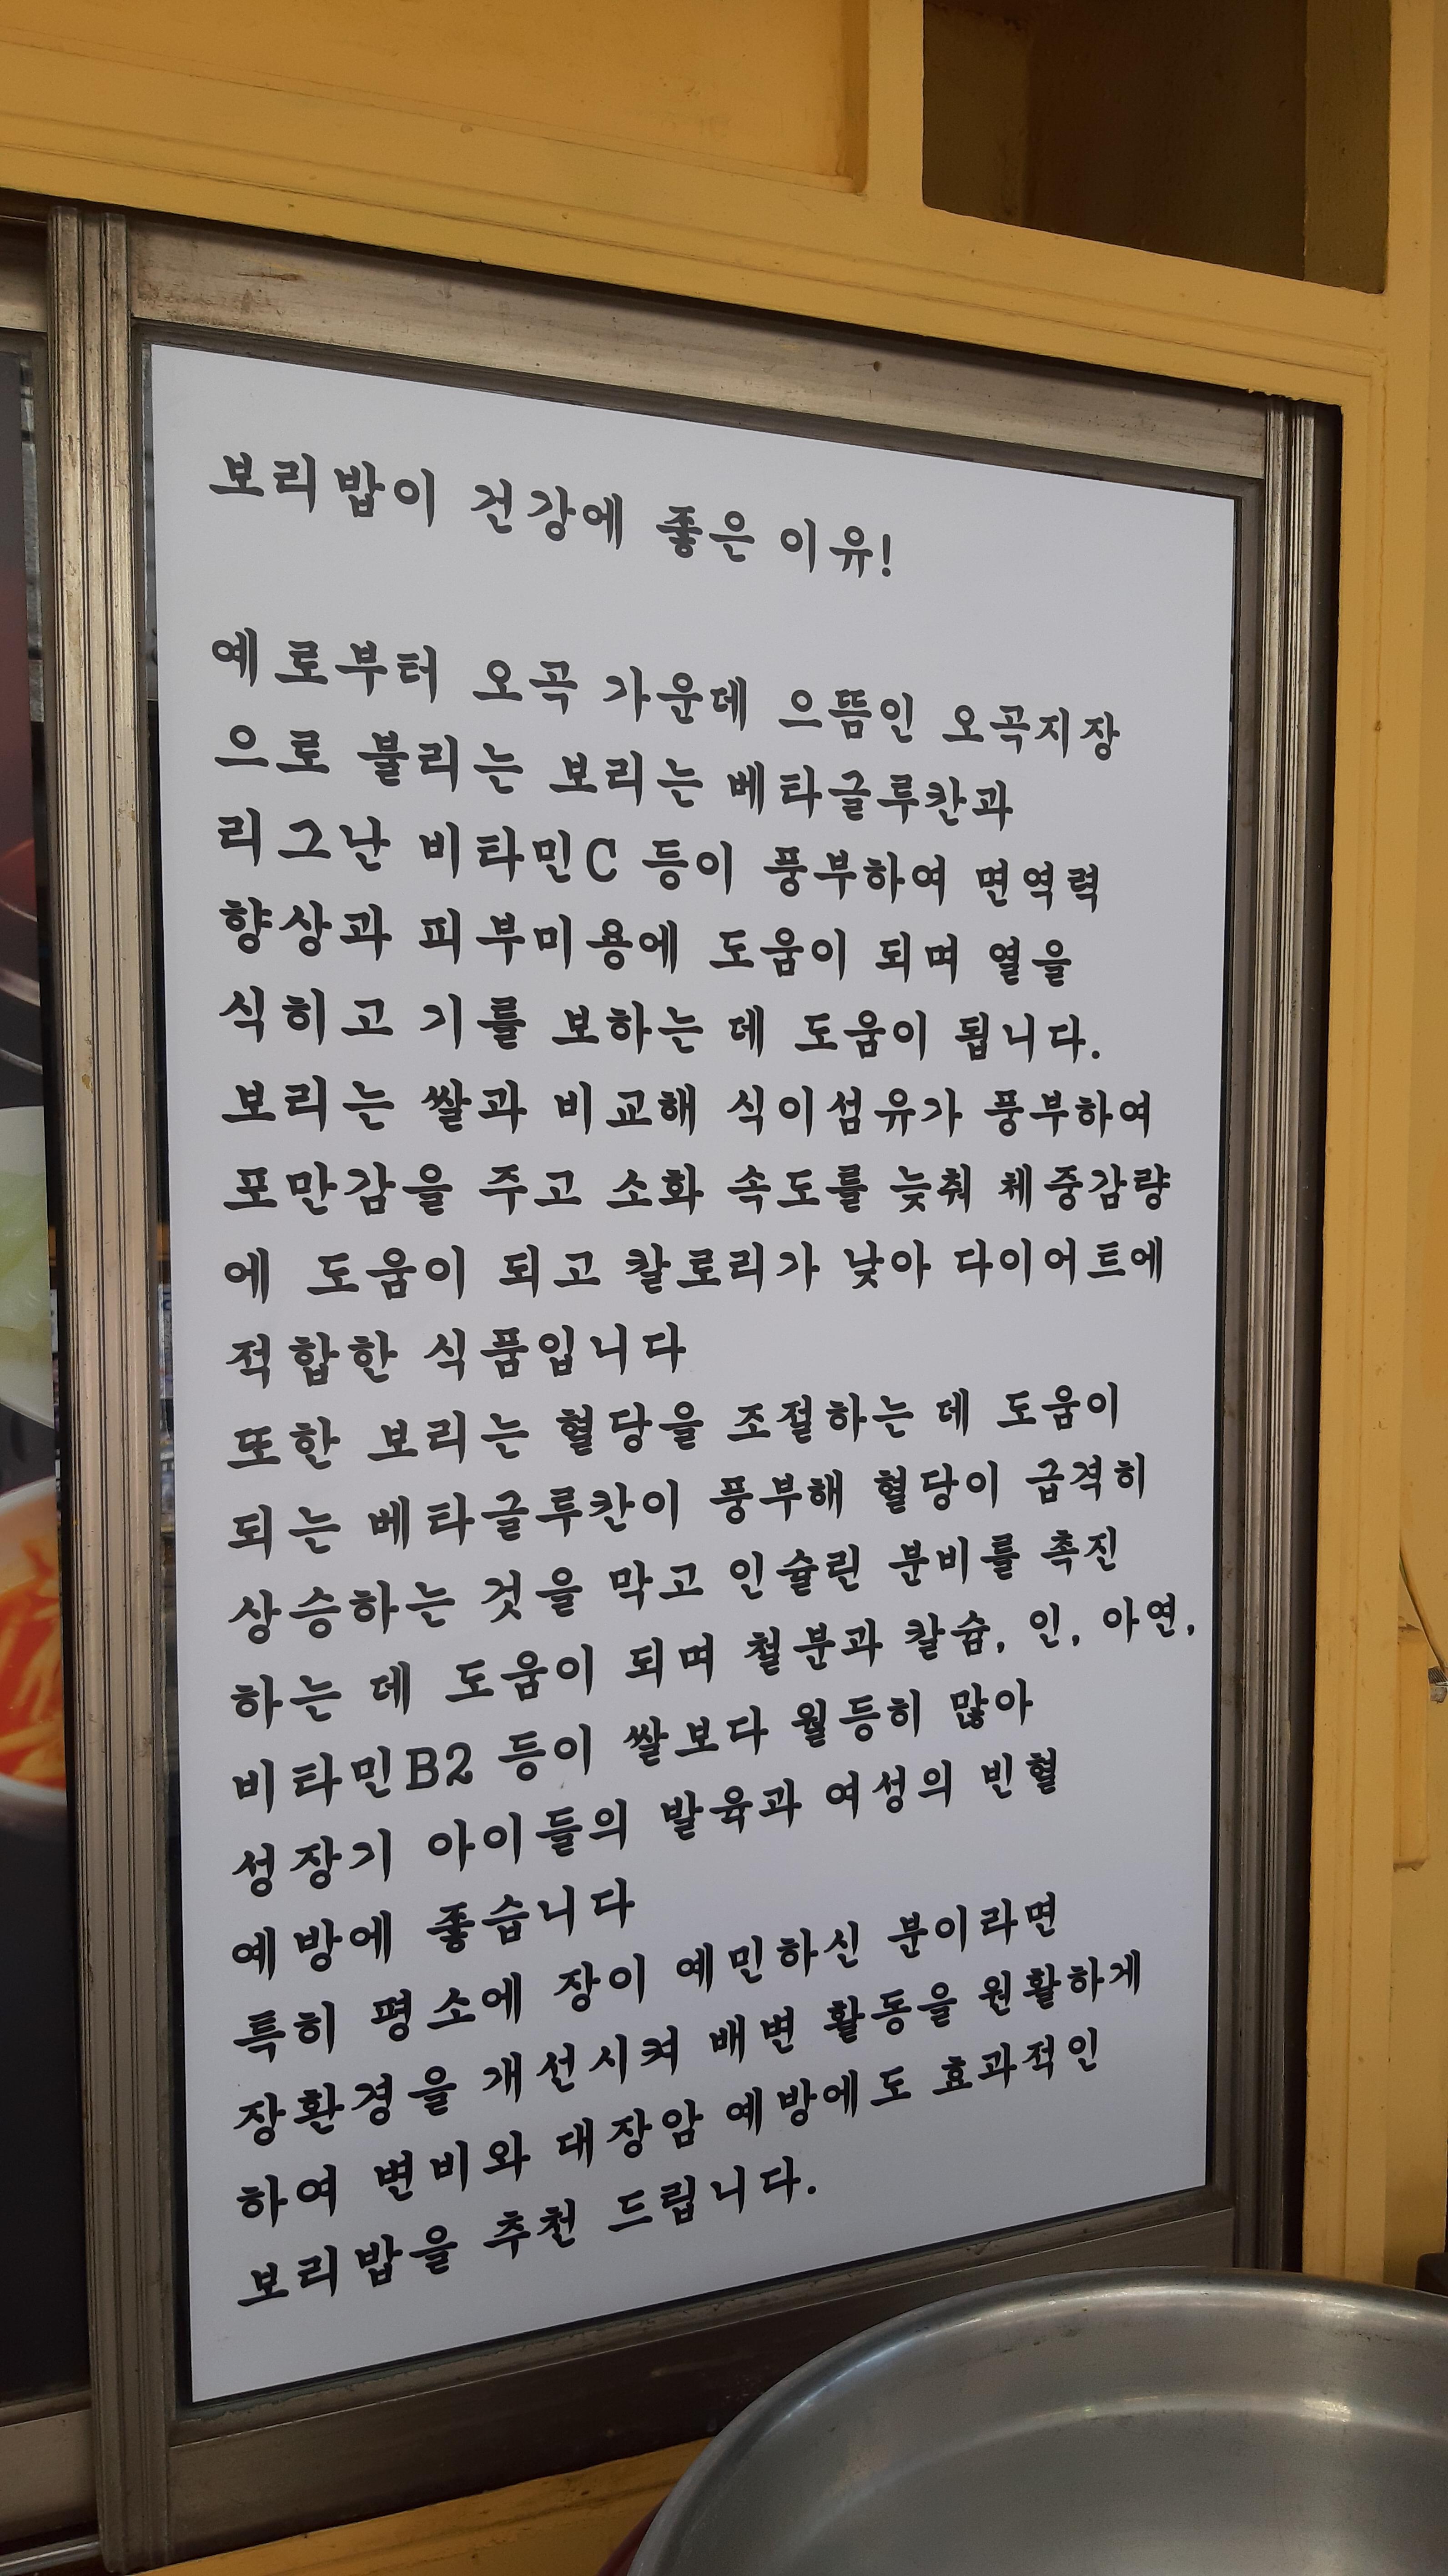 보리밥이 건강에 좋은 이유!
예로부터 오곡 가운데 으뜸인 오곡지장
으로 불리는 보리는 베타글루칸과
리그난 비타민C 등이 풍부하여 면역력
향상과 피부미용에 도움이 되며 열을
식히고 기를 보하는 데 도움이 됩니다.
보리는 쌀과 비교해 식이섬유가 풍부하여
포만감을 주고 소화 속도를 늦춰 체중감량
에 도움이 되고 칼로리가 낮아 다이어트에
적합한 식품입니다
또한 보리는 혈당을 조절하는 데 도움이
되는 베타글루칸이 풍부해 혈당이 급격히
상승하는 것을 막고 인슐린 분비를 촉진
하는 데 도움이 되며 철분과 칼슘, 인, 아연,
비타민B2 등이 쌀보다 월등히 많아
성장기 아이들의 발육과 여성의 빈혈
예방에 좋습니다
특히 평소에 장이 예민하신 분이라면
장환경을 개선시켜 배변 활동을 원활하게
하여 변비와 대장암 예방에도 효과적인
보리밥을 추천 드립니다.